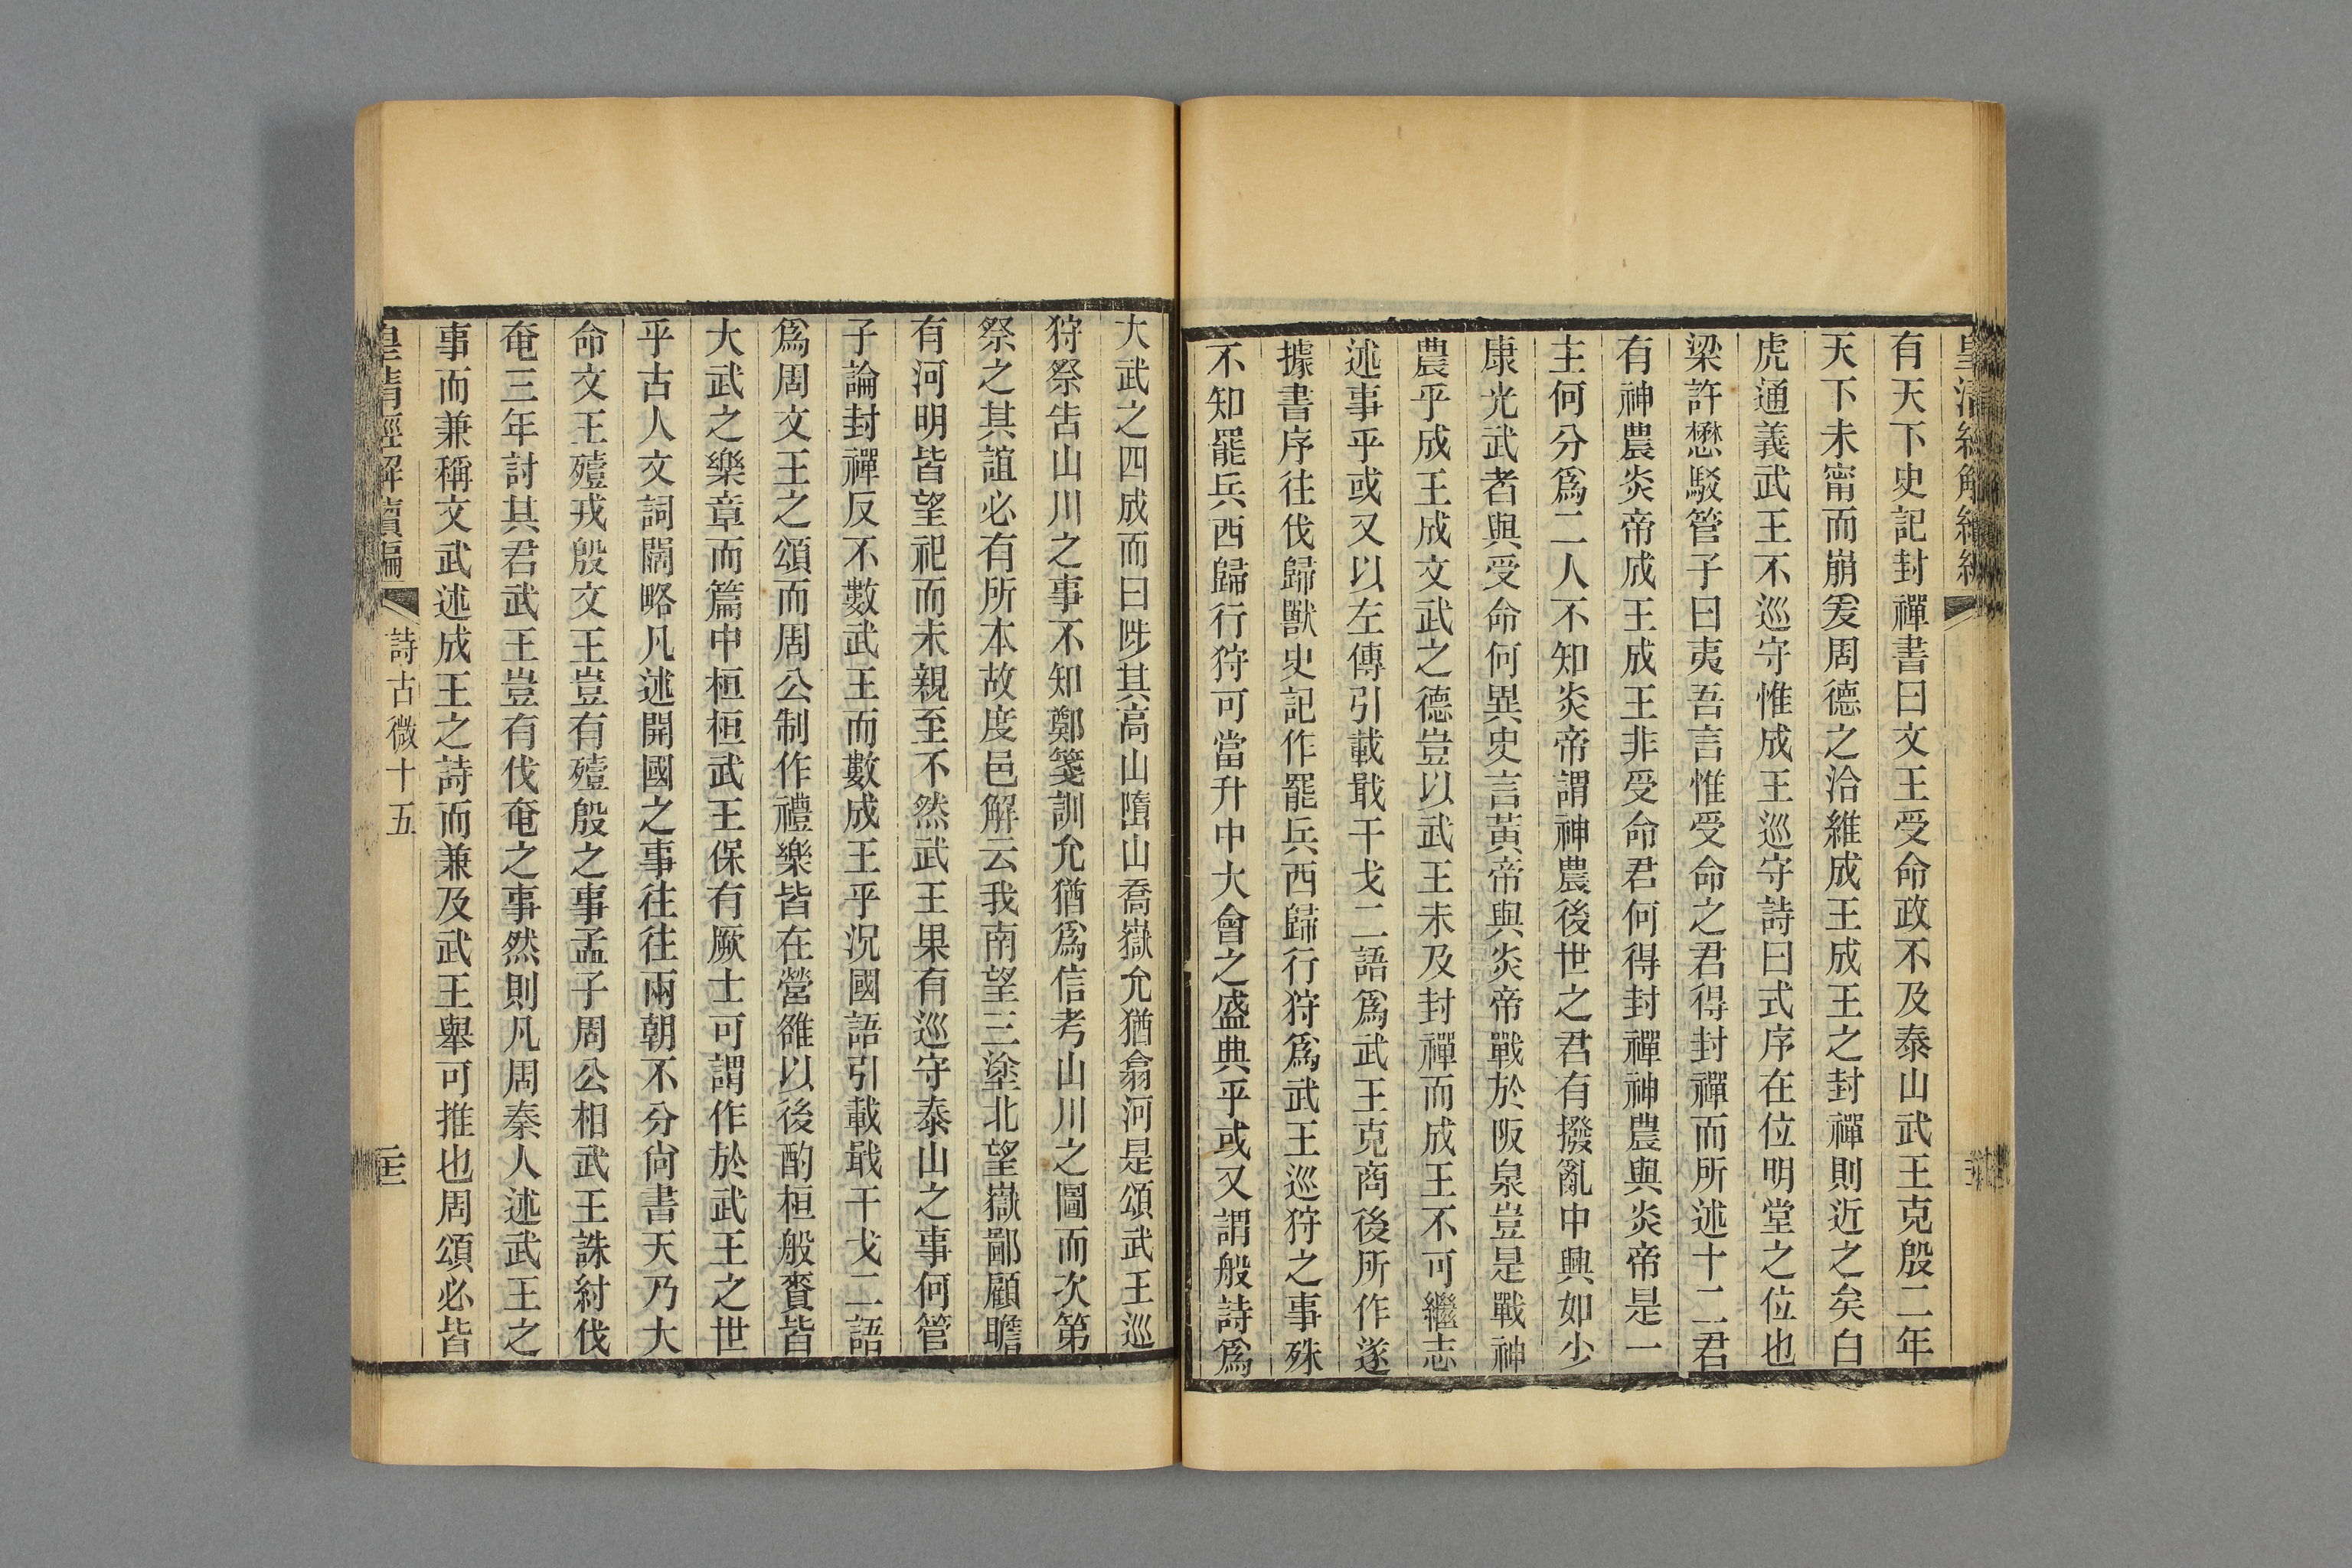 有天下史記封禪書曰文王受命政不及泰山武王克殷二年
天下未甯而崩爰周德之洽維成王成王之封禪則近之矣白
虎通義武王不巡守惟成王巡守詩曰式序在位明堂之位也
梁許懋駁管子曰夷吾言惟受命之君得封禪而所述十二君
有神農炎帝成王成王非受命君何得封禪神農與炎帝是一
主何分爲二人不知炎帝謂神農後世之君有撥亂中興如少
康光武者與受命何異史言黃帝與炎帝戰於阪泉豈是戰神
農乎成王成文武之德豈以武王未及封禪而成王不可繼志
述事乎或又以左傳引載戢干戈二語爲武王克商後所作遂
據書序往伐歸獸史記作罷兵西歸行狩爲武王巡狩之事殊
不知罷兵西歸行狩可當升中大會之盛典乎或又謂般詩爲
大武之四成而曰陟其高山隋山喬嶽允猶翕河是頌武王巡
狩祭告山川之事不知鄭箋訓允猶爲信考山川之圖而次第
祭之其誼必有所本故度邑解云我南望三塗北望嶽鄙顧瞻
有河明皆望祀而未親至不然武王果有巡守泰山之事何管
子論封禪反不數武王而數成王乎況國語引載戢干戈二語
爲周文王之頌而周公制作禮樂皆在營雒以後酌桓般賚皆
大武之樂章而篇中桓桓武王保有厥士可謂作於武王之世
乎古人文詞闊略凡述開國之事往往兩朝不分尙書天乃大
命文王殪戎殷文王豈有殪殷之事孟子周公相武王誅紂伐
奄三年討其君武王豈有伐奄之事然則凡周秦人述武王之
事而兼稱文武述成王之詩而兼及武王舉可推也周頌必皆
皇清經解續編 詩古微十五